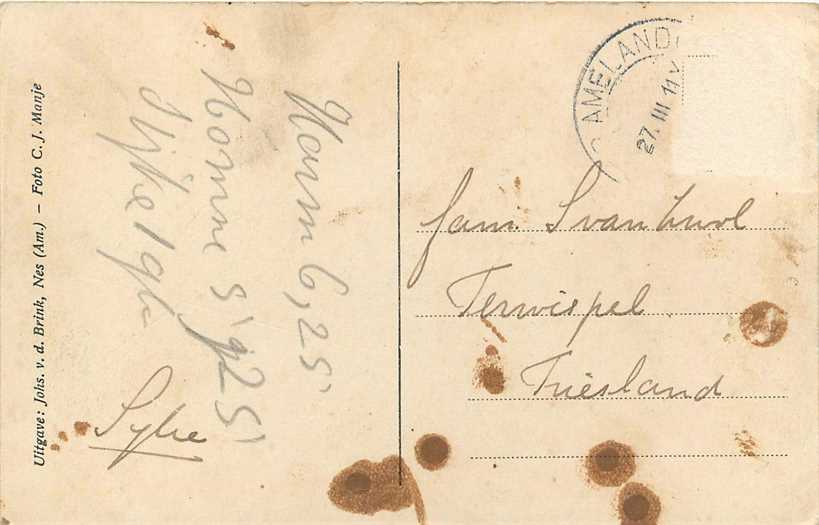 Uitgave: Johs. v. d. Brink, Nes (Am.) – Foto C. J. Manje
Harm 6,25
Homme 9,25
Sytse
AMELAND
27. III 11 V
fam. S van Zwol
Terwispel
Friesland